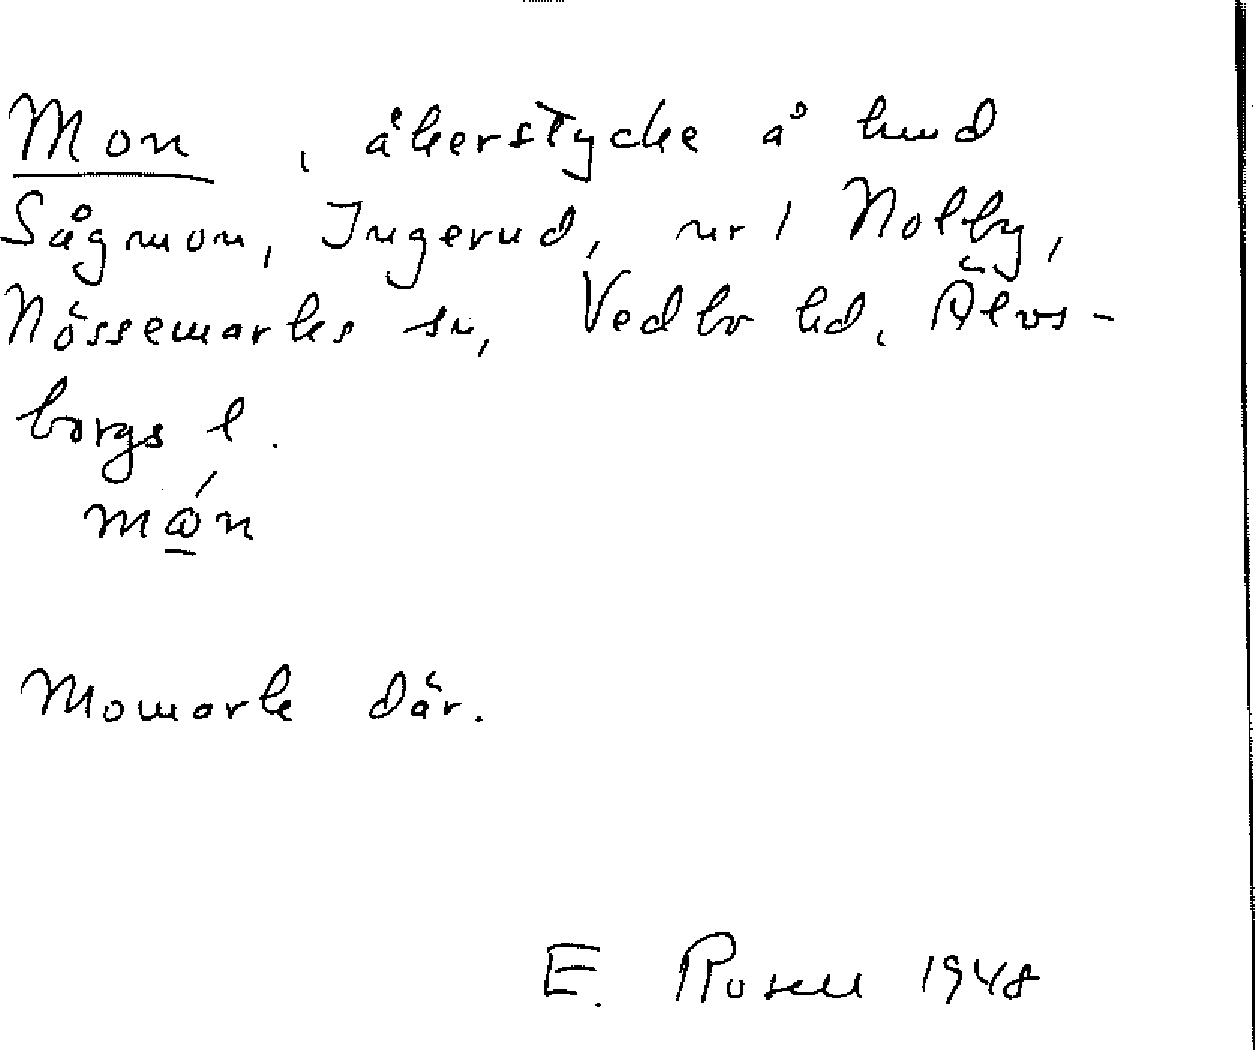 Mon, åkerstycke å hmd
Sågmon, Ingerud, nr 1 Nolby,
Nössemarks sn, Vedbo hd, Älvs-
borgs l.
mǫ́n
Momark där.
E. Rosell 1948